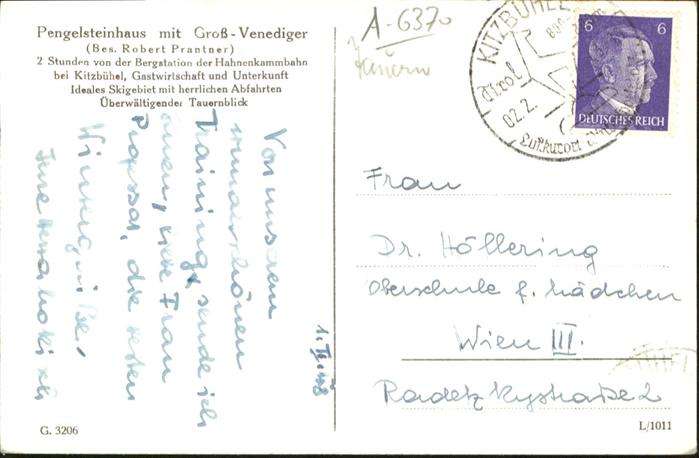 Pengelsteinhaus mit Groß-Venediger
(Bes. Robert Prantner)
2 Stunden von der Bergstation der Hahnenkammbahn
bei Kitzbühel, Gastwirtschaft und Unterkunft
Ideales Skigebiet mit herrlichen Abfahrten
Überwältigender Tauernblick
A-6370
KITZBÜHEL
Tirol
02.2.
Luftkurort
6 6
DEUTSCHES REICH
Von unserem
wunderschönen
Training, sende ich
Ihnen, liebe Frau
Professor, die besten
Wintergrüße,
Ihre
Frau
Dr. Höllering
Oberschule f. Mädchen
Wien III.
Radetzkystraße 2
G. 3206
L/1011